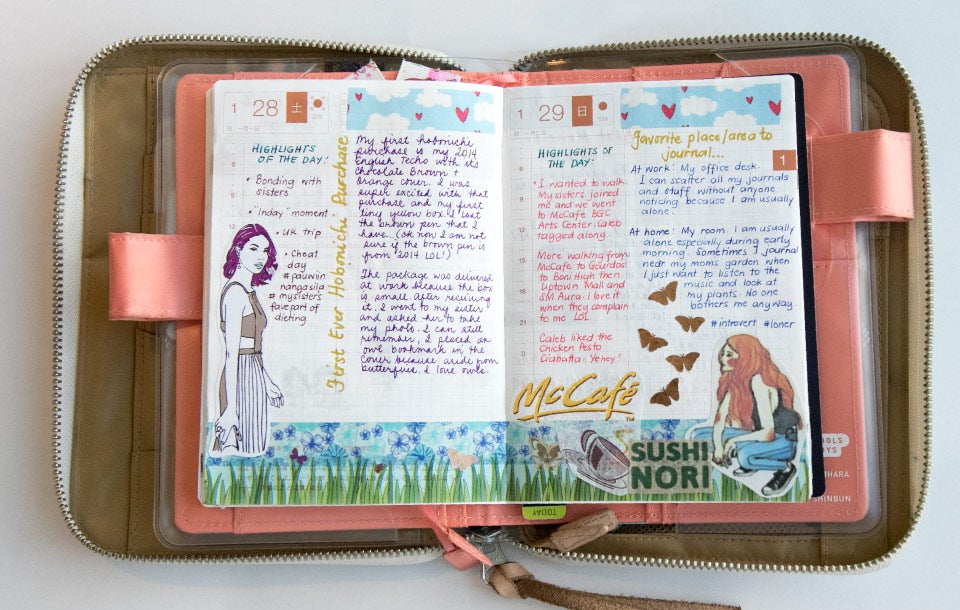 1 28 土
HIGHLIGHTS
OF THE DAY:
• Bonding with
sisters
• "Inday" moment
• UK trip
• Cheat
day
# pauwiin
nangasila
# mysisters
fave part of
dieting
First Ever Hobonichi Purchase
My first hobonichi
purchase is my 2014
English Techo with its
Chocolate Brown +
Orange cover. I was
super excited with that
purchase and my first
tiny yellow box. I lost
the brown pen that I
have... (OK now I am not
sure if the brown pen is
from 2014 LOL!)
The package was delivered
at work because the box
is small. After receiving
it, I went to my sister
and asked her to take
my photo. I can still
remember, I placed an
owl bookmark in the
cover because aside from
butterflies, I love owls.
1 29 日
HIGHLIGHTS OF
THE DAY:
• I wanted to walk.
My sisters joined
me and we went
to McCafe BGC
Arts Center. Caleb
tagged along.
More walking from
McCafe to Gourdos
to Boni High then
Uptown Mall and
SM Aura. I love it
when they complain
to me LOL
Caleb liked the
Chicken Pesto
Ciabatta. Yehey!
McCafé
TM
Favorite place/area to
journal...
1
At work: My office desk.
I can scatter all my journals
and stuff without anyone
noticing because I am usually
alone.
At home: My room. I am usually
alone especially during early
morning. Sometimes I journal
near my moms garden when
I just want to listen to the
music and look at
my plants. No one
bothers me anyway.
#introvert #loner
SUSHI
NORI
TODAY
OOLS
YS
HARA
SHINBUN